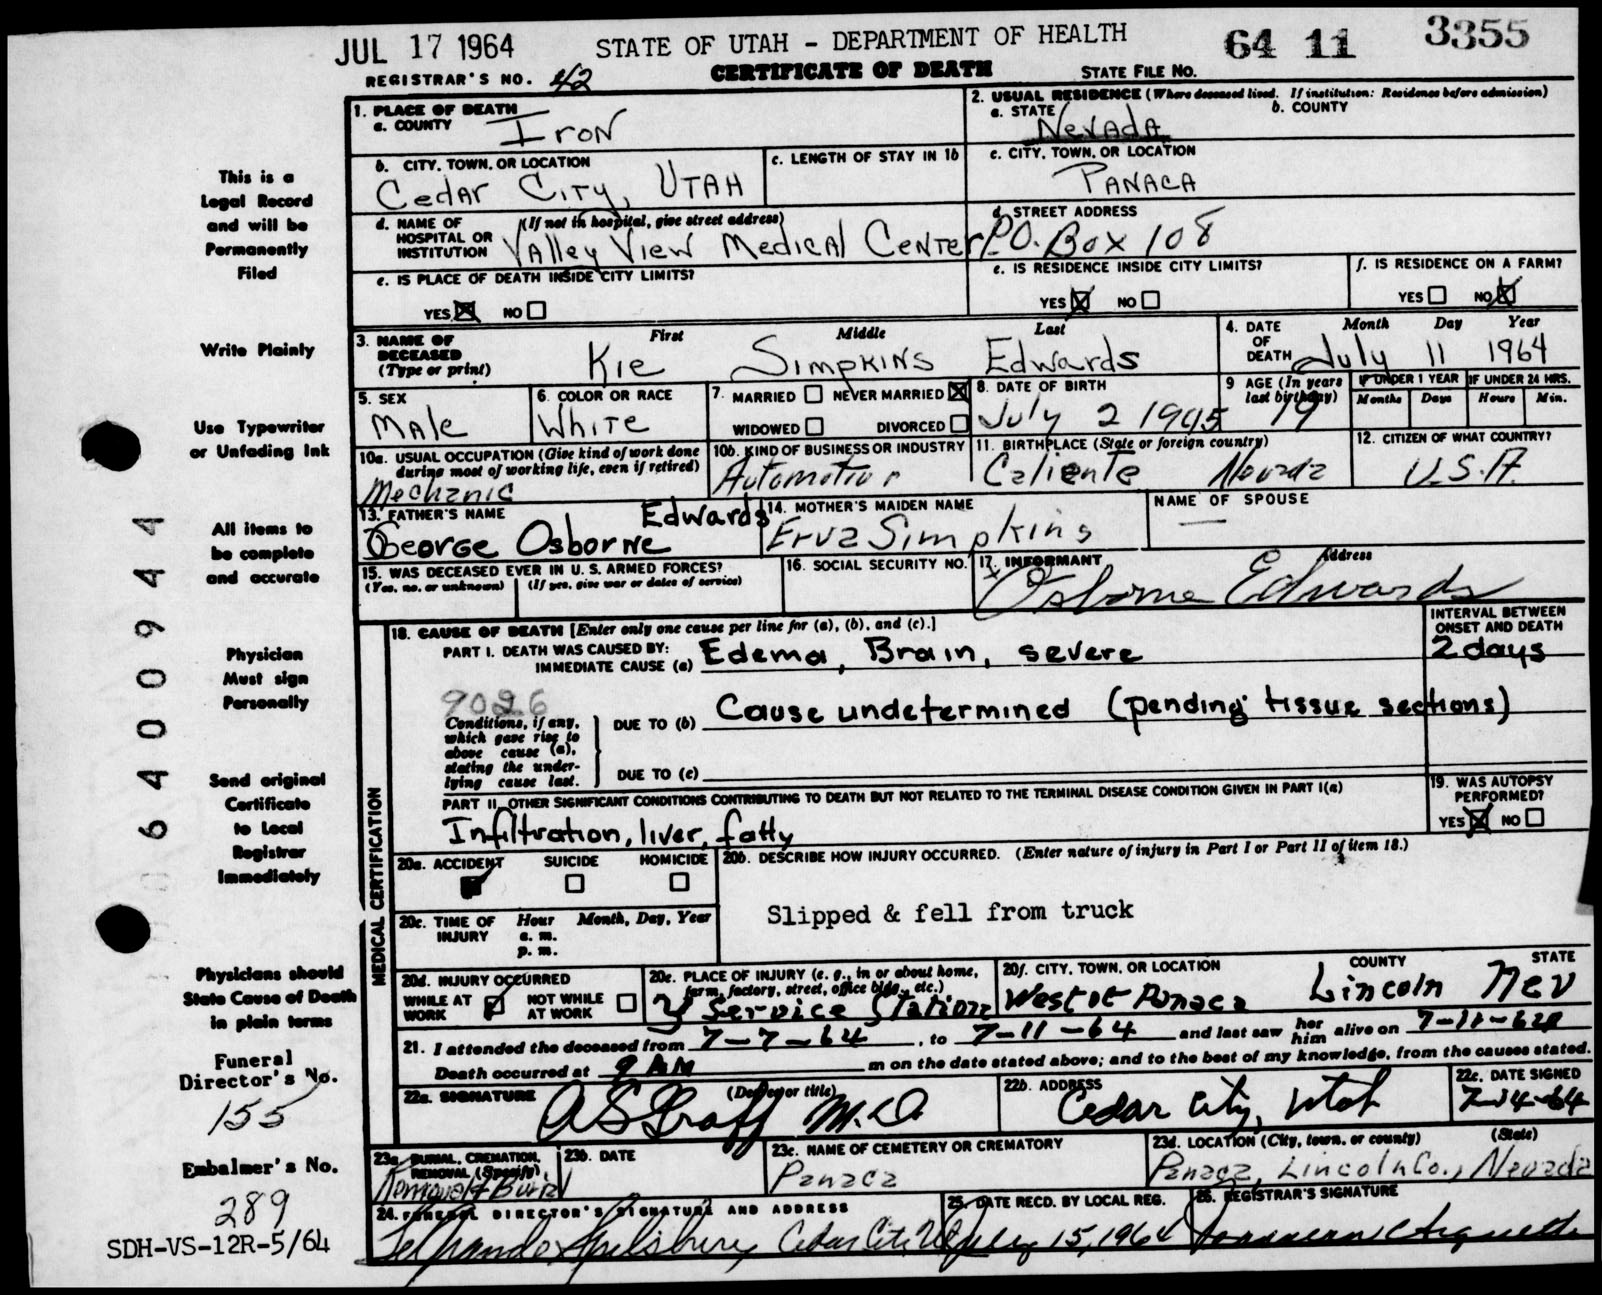 JUL 17 1964 STATE OF UTAH - DEPARTMENT OF HEALTH 64 11 3355
REGISTRAR'S NO. 42 CERTIFICATE OF DEATH STATE FILE NO.
1. PLACE OF DEATH
a. COUNTY Iron
2. USUAL RESIDENCE (Where deceased lived. If institution: Residence before admission)
a. STATE Nevada b. COUNTY
b. CITY, TOWN, OR LOCATION Cedar City, Utah
c. LENGTH OF STAY IN 1b
c. CITY, TOWN, OR LOCATION
Panaca
d. NAME OF HOSPITAL OR INSTITUTION (If not in hospital, give street address)
Valley View Medical Center
d. STREET ADDRESS
P.O. Box 108
e. IS PLACE OF DEATH INSIDE CITY LIMITS?
YES ☒ NO ☐
e. IS RESIDENCE INSIDE CITY LIMITS?
YES ☒ NO ☐
f. IS RESIDENCE ON A FARM?
YES ☐ NO ☒
3. NAME OF DECEASED (Type or print)
First Middle Last
Kie Simpkins Edwards
4. DATE OF DEATH Month Day Year
July 11 1964
5. SEX
Male
6. COLOR OR RACE
White
7. MARRIED ☐ NEVER MARRIED ☒
WIDOWED ☐ DIVORCED ☐
8. DATE OF BIRTH
July 2 1945
9 AGE (In years last birthday) 19
IF UNDER 1 YEAR Months Days
IF UNDER 24 HRS. Hours Min.
10a. USUAL OCCUPATION (Give kind of work done during most of working life, even if retired)
Mechanic
10b. KIND OF BUSINESS OR INDUSTRY
Automotive
11. BIRTHPLACE (State or foreign country)
Caliente Nevada
12. CITIZEN OF WHAT COUNTRY?
U.S.A.
13. FATHER'S NAME
George Osborne Edwards
14. MOTHER'S MAIDEN NAME
Erva Simpkins
NAME OF SPOUSE
—
15. WAS DECEASED EVER IN U. S. ARMED FORCES?
(Yes, no, or unknown) (If yes, give war or dates of service)
16. SOCIAL SECURITY NO.
17. INFORMANT Address
x Osborne Edwards
18. CAUSE OF DEATH [Enter only one cause per line for (a), (b), and (c).]
INTERVAL BETWEEN ONSET AND DEATH
PART I. DEATH WAS CAUSED BY:
IMMEDIATE CAUSE (a) Edema, Brain, severe 2 days
9026
Conditions, if any, which gave rise to above cause (a), stating the underlying cause last.
DUE TO (b) Cause undetermined (pending tissue sections)
DUE TO (c)
PART II. OTHER SIGNIFICANT CONDITIONS CONTRIBUTING TO DEATH BUT NOT RELATED TO THE TERMINAL DISEASE CONDITION GIVEN IN PART I(a)
Infiltration, liver, fatty
19. WAS AUTOPSY PERFORMED?
YES ☒ NO ☐
MEDICAL CERTIFICATION
20a. ACCIDENT SUICIDE HOMICIDE
20b. DESCRIBE HOW INJURY OCCURRED. (Enter nature of injury in Part I or Part II of item 18.)
Slipped & fell from truck
20c. TIME OF INJURY Hour Month, Day, Year
a. m.
p. m.
20d. INJURY OCCURRED
WHILE AT WORK ☑ NOT WHILE AT WORK ☐
20e. PLACE OF INJURY (e. g., in or about home, farm, factory, street, office bldg., etc.)
Service Station
20f. CITY, TOWN, OR LOCATION COUNTY STATE
West of Panaca Lincoln Nev
21. I attended the deceased from 7-7-64, to 7-11-64 and last saw her him alive on 7-11-64
Death occurred at 9 AM m on the date stated above; and to the best of my knowledge, from the causes stated.
22a. SIGNATURE (Degree or title)
A S Graff M.D.
22b. ADDRESS
Cedar City, Utah
22c. DATE SIGNED
7-14-64
23a. BURIAL, CREMATION, REMOVAL (Specify)
Removal & Burial
23b. DATE
23c. NAME OF CEMETERY OR CREMATORY
Panaca
23d. LOCATION (City, town, or county) (State)
Panaca, Lincoln Co., Nevada
24. FUNERAL DIRECTOR'S SIGNATURE AND ADDRESS
Spilsbury, Cedar City, U
25. DATE RECD. BY LOCAL REG.
July 15, 1964
26. REGISTRAR'S SIGNATURE
This is a
Legal Record
and will be
Permanently
Filed
Write Plainly
Use Typewriter
or Unfading Ink
All items to
be complete
and accurate
Physician
Must sign
Personally
Send original
Certificate
to Local
Registrar
Immediately
Physicians should
State Cause of Death
in plain terms
Funeral
Director's No.
155
Embalmer's No.
289
SDH-VS-12R-5/64
6400944